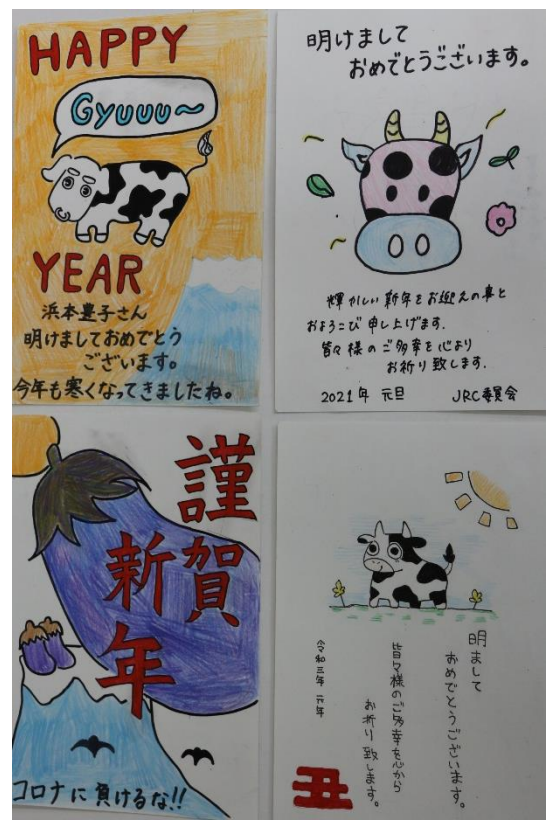 HAPPY
GYUUU～
YEAR
浜本豊子さん
明けましておめでとう
ございます。
今年も寒くなってきましたね。
明けまして
おめでとうございます。
輝かしい新年をお迎えの事と
およろこび申し上げます.
皆々様のご多幸を心より
お祈り致します.
2021年 元旦 JRC委員会
謹賀
新年
コロナに負けるな!!
明まして
おめでとうございます。
皆々様のご多幸を心から
お祈り致します。
令和三年 元年
丑